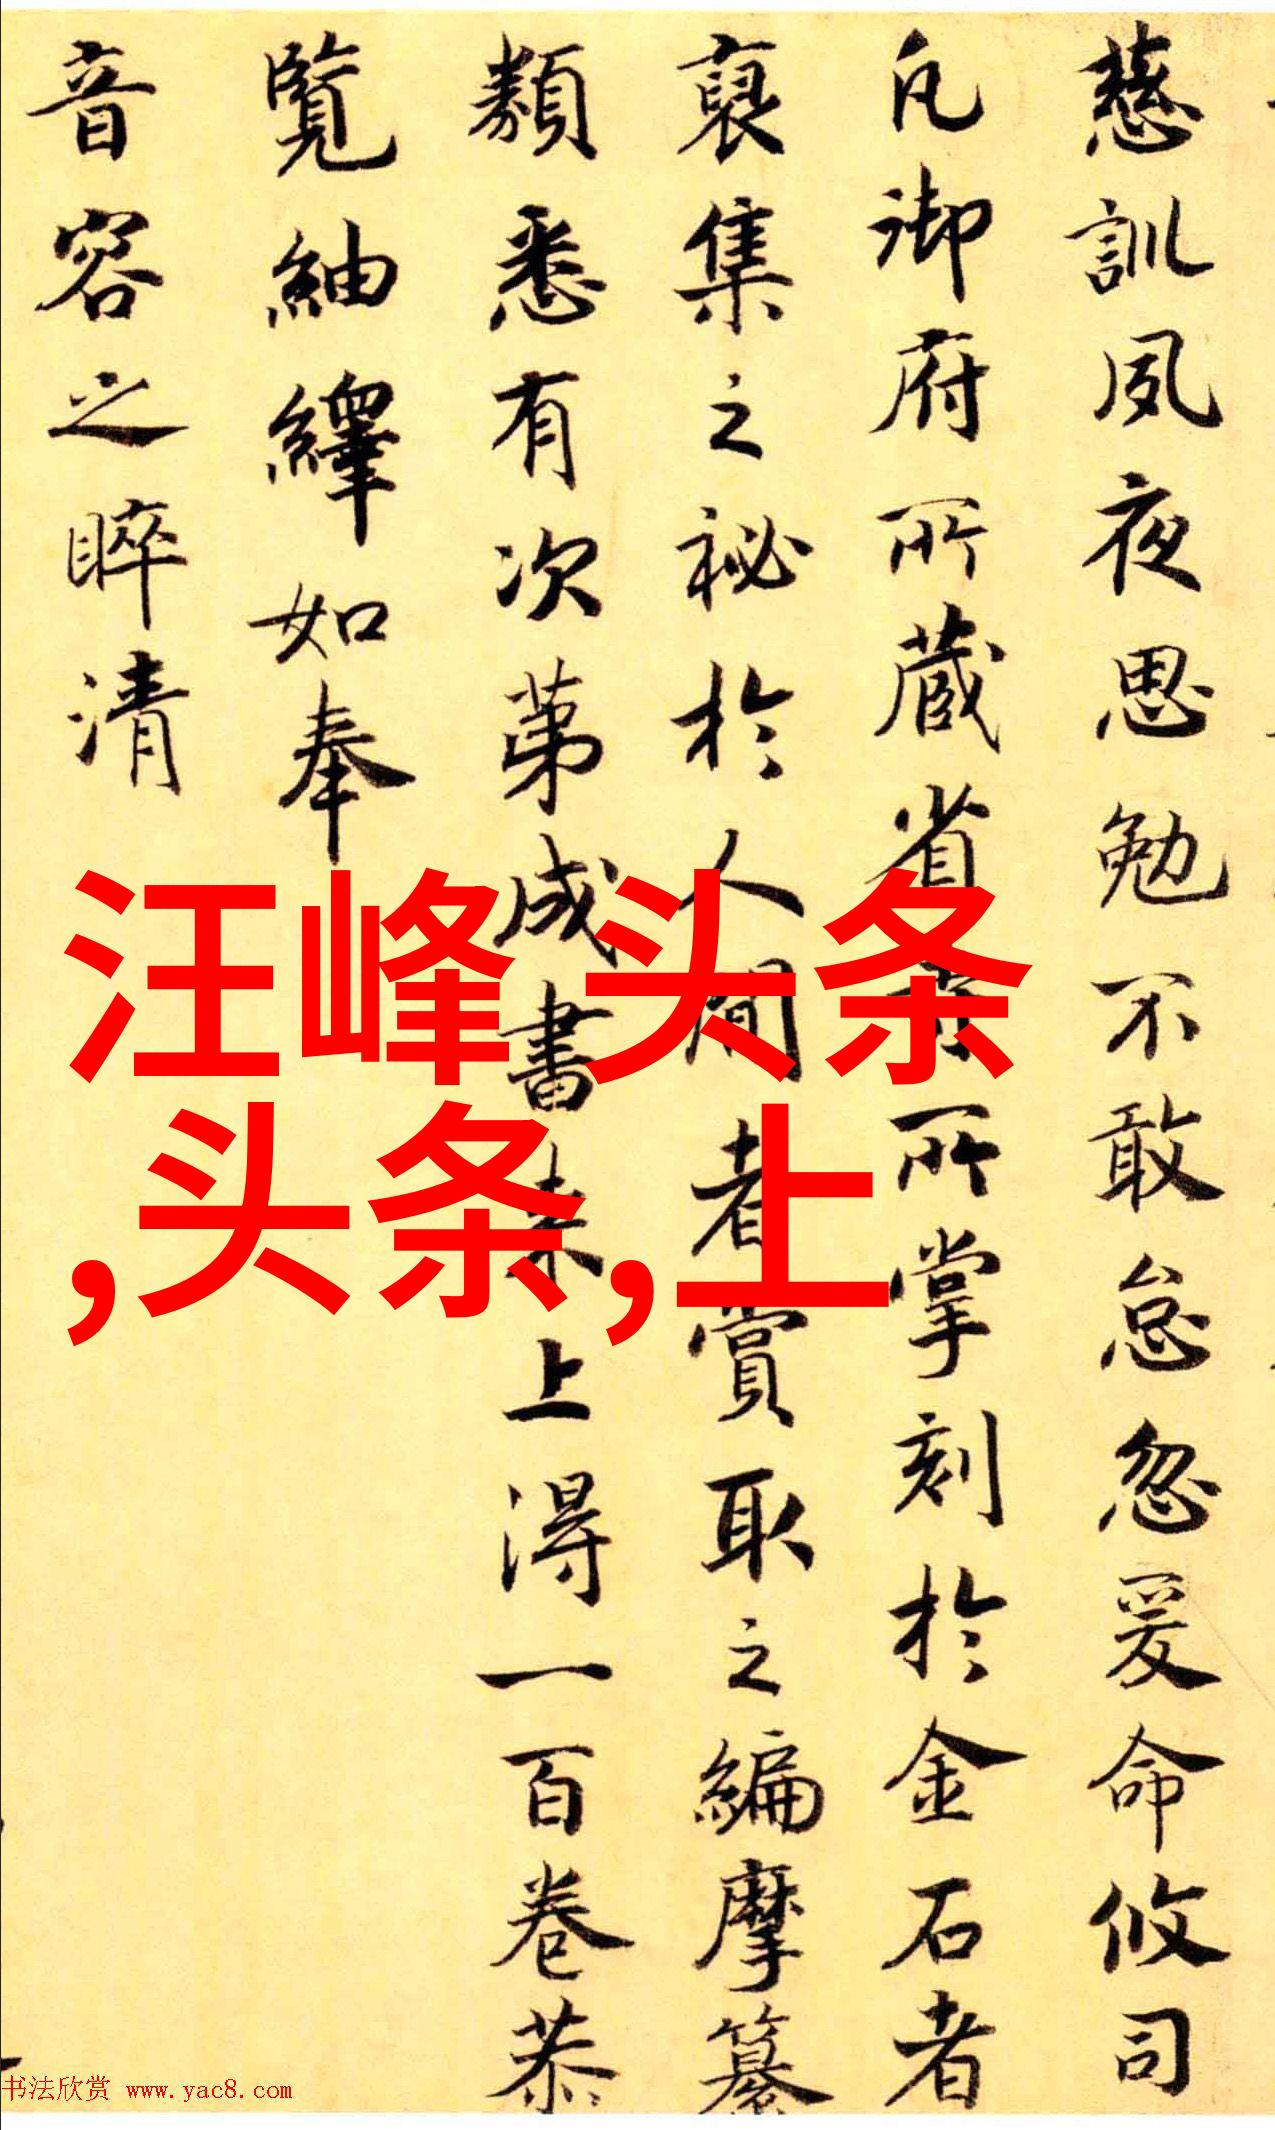 慈訓夙夜思勉不敢怠忽爰命攸司
凡御府所蔵省寺所掌刻於金石者
裒集之祕於人間者賞取之編摩纂
類悉有次第成書来上得一百卷恭
覽紬繹如奉
音容之睟清
汪峰 头条
,头条,上
书法欣赏 www.yac8.com